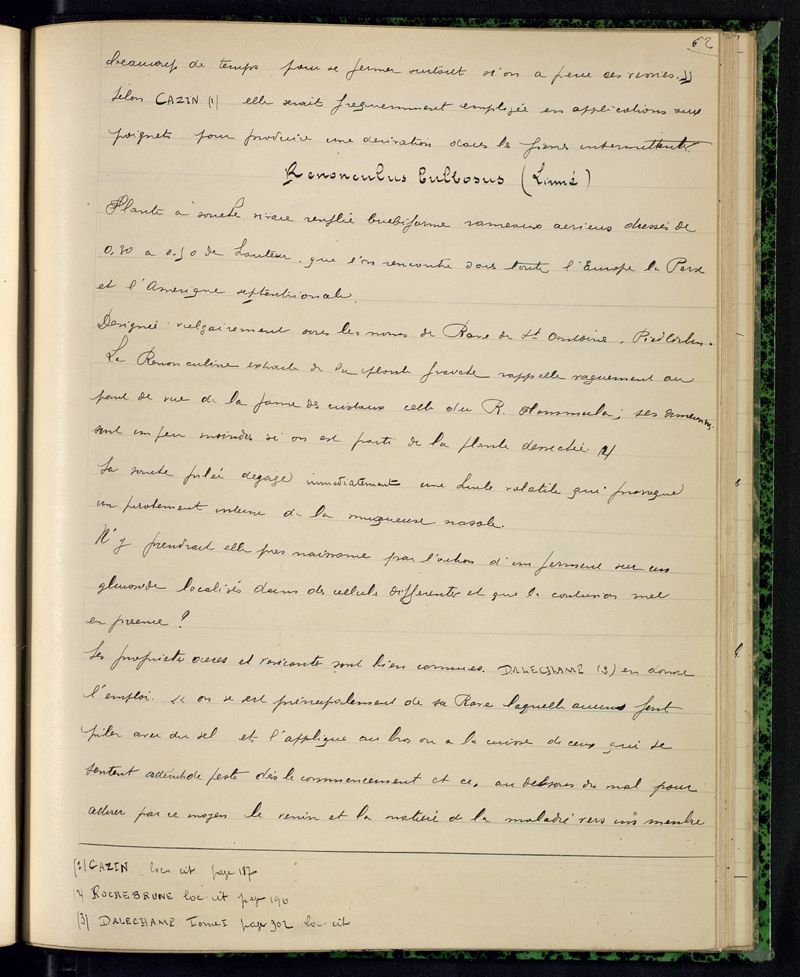 62
beaucoup de temps pour se fermer surtout si on a percé ces vessies. »
Selon CAZIN (1) elle serait frequemment employée en applications aux
poignets pour produire une derivation dans les fievres intermittentes.
Renonculus bulbosus (Linné)
Plante à souche vivace renflée bulbiforme rameaux aeriens dressés de
0,30 a 0.50 de hauteur. que l'on rencontre dans toute l'Europe la Perse
et l'Amerique septentrionale.
Designée vulgairement sous les noms de Rave de St Antoine, Pied Corbin.
La Renonculine extraite de la plante fraiche rappelle vaguement au
point de vue de la forme des cristaux celle du R. flammula; ses dimensions
sont un peu moindres si on est parti de la plante dessechée. (2)
La souche pilée degage immediatement une huile volatile qui provoque
un picotement intense de la muqueuse nasale.
N'y prendrait elle pas naissance par l'action d'un ferment sur un
glucoside localisés dans des cellules differentes et que la contusion met
en presence ?
Les proprietes acres et vesicantes sont bien connues. DALECHAMP (3) en donne
l'emploi. « on se sert principalement de sa Rave laquelle aucuns font
piler avec du sel et l'applique au bras ou a la cuisse de ceux qui se
sentent atteints de peste dès le commencement et ce, au dessous du mal pour
attirer par ce moyen le venin et la matière de la maladie vers un membre
(1) CAZIN loco cit page 187
(2) ROCHEBRUNE loc. cit page 190
(3) DALECHAMP Tome I page 902 loc. cit